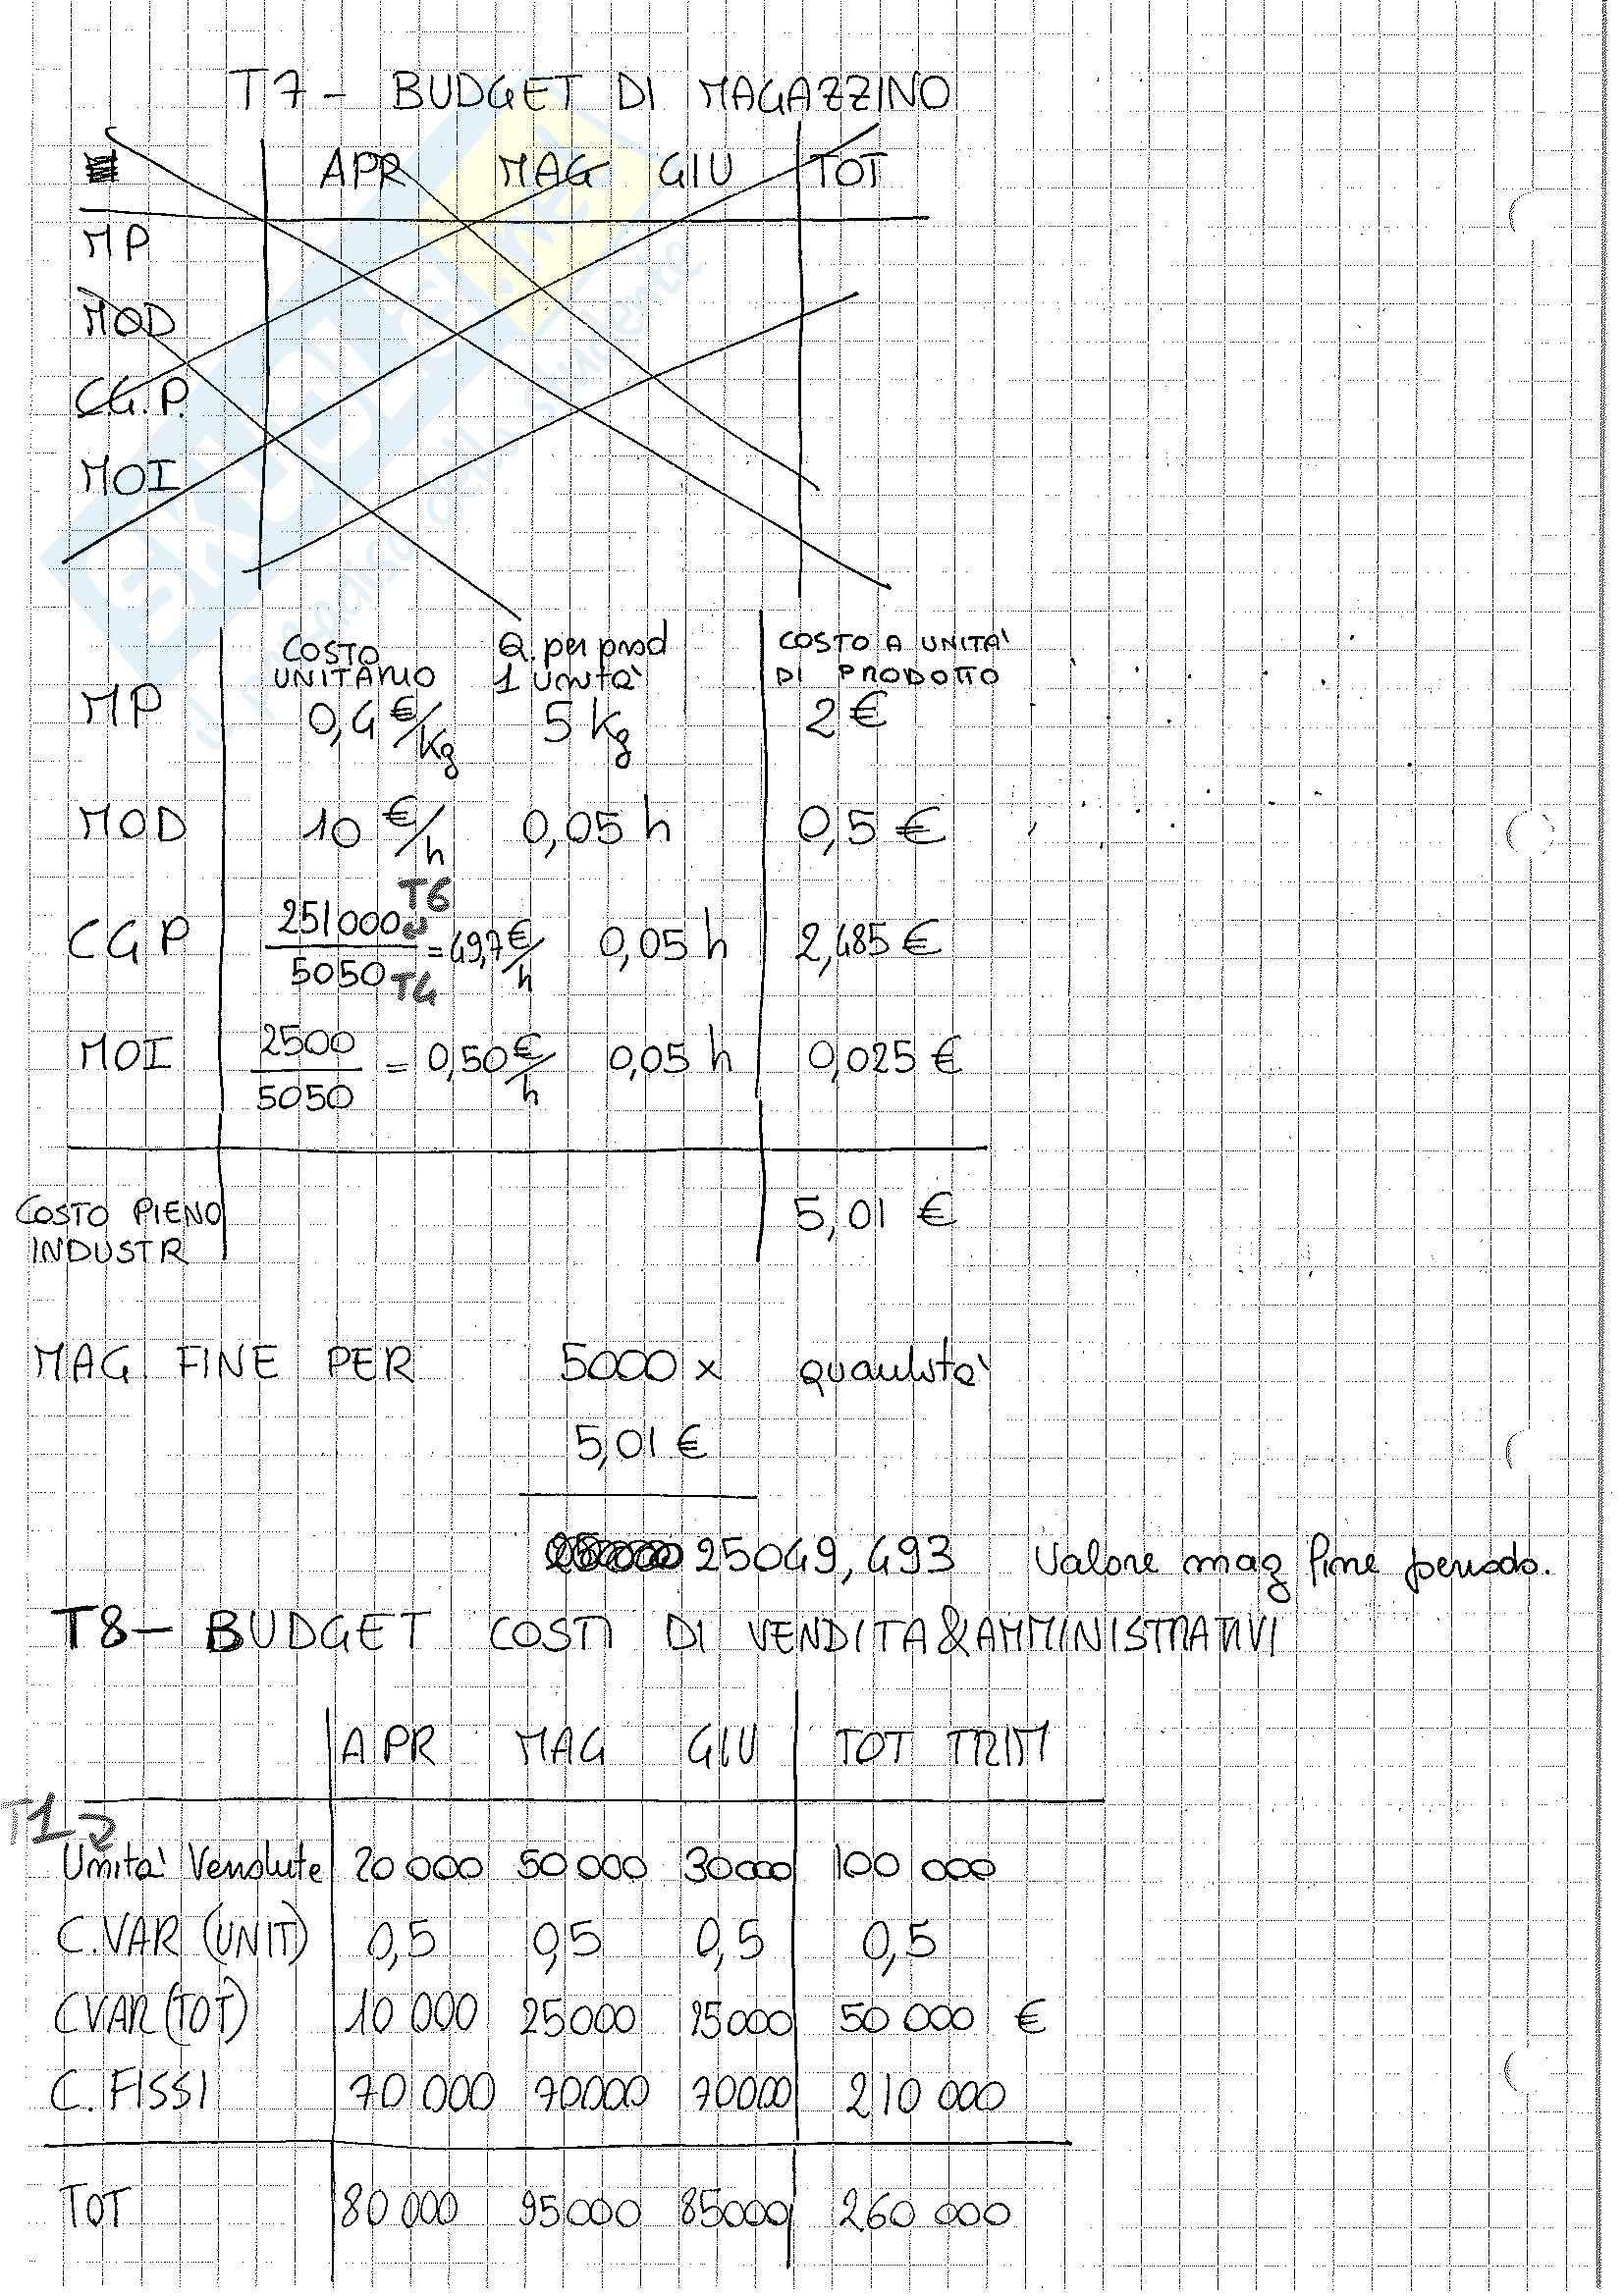 T7 - BUDGET DI MAGAZZINO
APR MAG GIU TOT
MP
MOD
CG.P.
MOI
COSTO UNITARIO Q. per prod 1 unità COSTO A UNITA' DI PRODOTTO
MP 0,4 €/Kg 5 Kg 2 €
MOD 10 €/h 0,05 h 0,5 €
T6
CGP 251000/5050 = 49,7 €/h 0,05 h 2,485 €
T4
MOI 2500/5050 = 0,50 €/h 0,05 h 0,025 €
COSTO PIENO INDUSTR 5,01 €
MAG FINE PER 5000 x quantità
5,01 €
25049,493 Valore mag fine periodo.
T8 - BUDGET COSTI DI VENDITA & AMMINISTRATIVI
APR MAG GIU TOT TRIM
T1
Unità Vendute 20 000 50 000 30000 100 000
C.VAR (UNIT) 0,5 0,5 0,5 0,5
CVAR (TOT) 10 000 25000 15000 50 000 €
C. FISSI 70 000 70000 70000 210 000
TOT 80 000 95000 85000 260 000